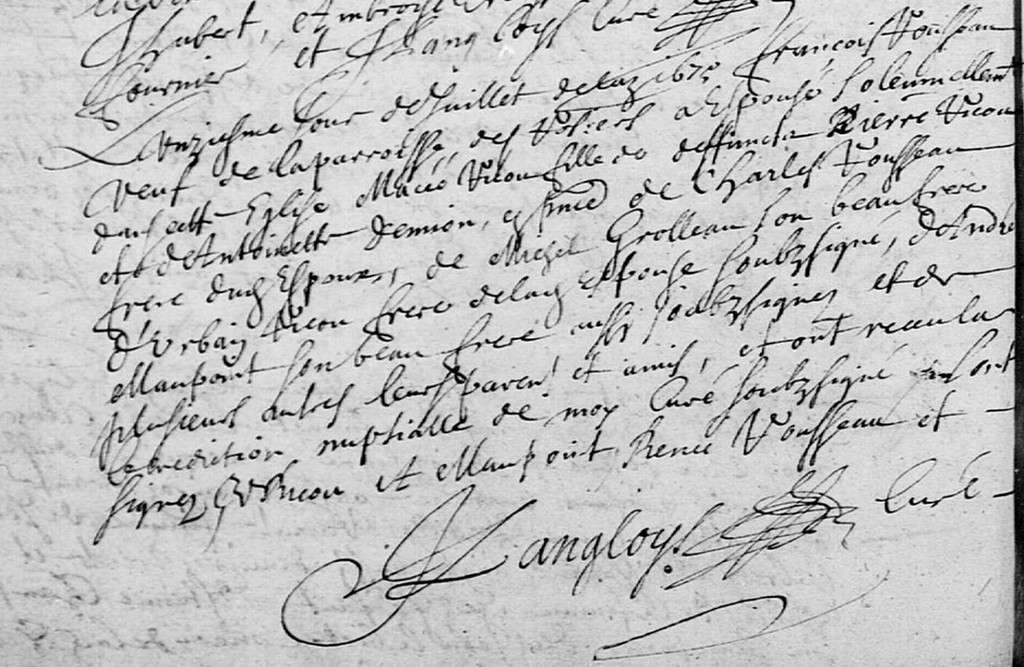 Hubert, et Ambroise
fournier et Langloys Curé
L'unziesme Jour de Juillet de l'an 1675 François Vousseau
veuf de la parroisse des Vosres a Espousé solennellemt
en ceste Eglise Macée Vicou fille de deffuncts Pierre Vicou
et d'Antoinette Demion, en pnce de Charles Vousseau
frere dud Espoux, de Michel Grolleau son beau frere
d'Urbain Vicou frere de lad Espouse soubzsigné, d'André
Maupoint son beau frere aussy soubzsignez et de
plusieurs autres leurs parens et amis, et ont receu la
benediction nuptialle de moy Curé soubzsigné
signez Vicou et Maupoint Renée Vousseau et
Langloys Curé